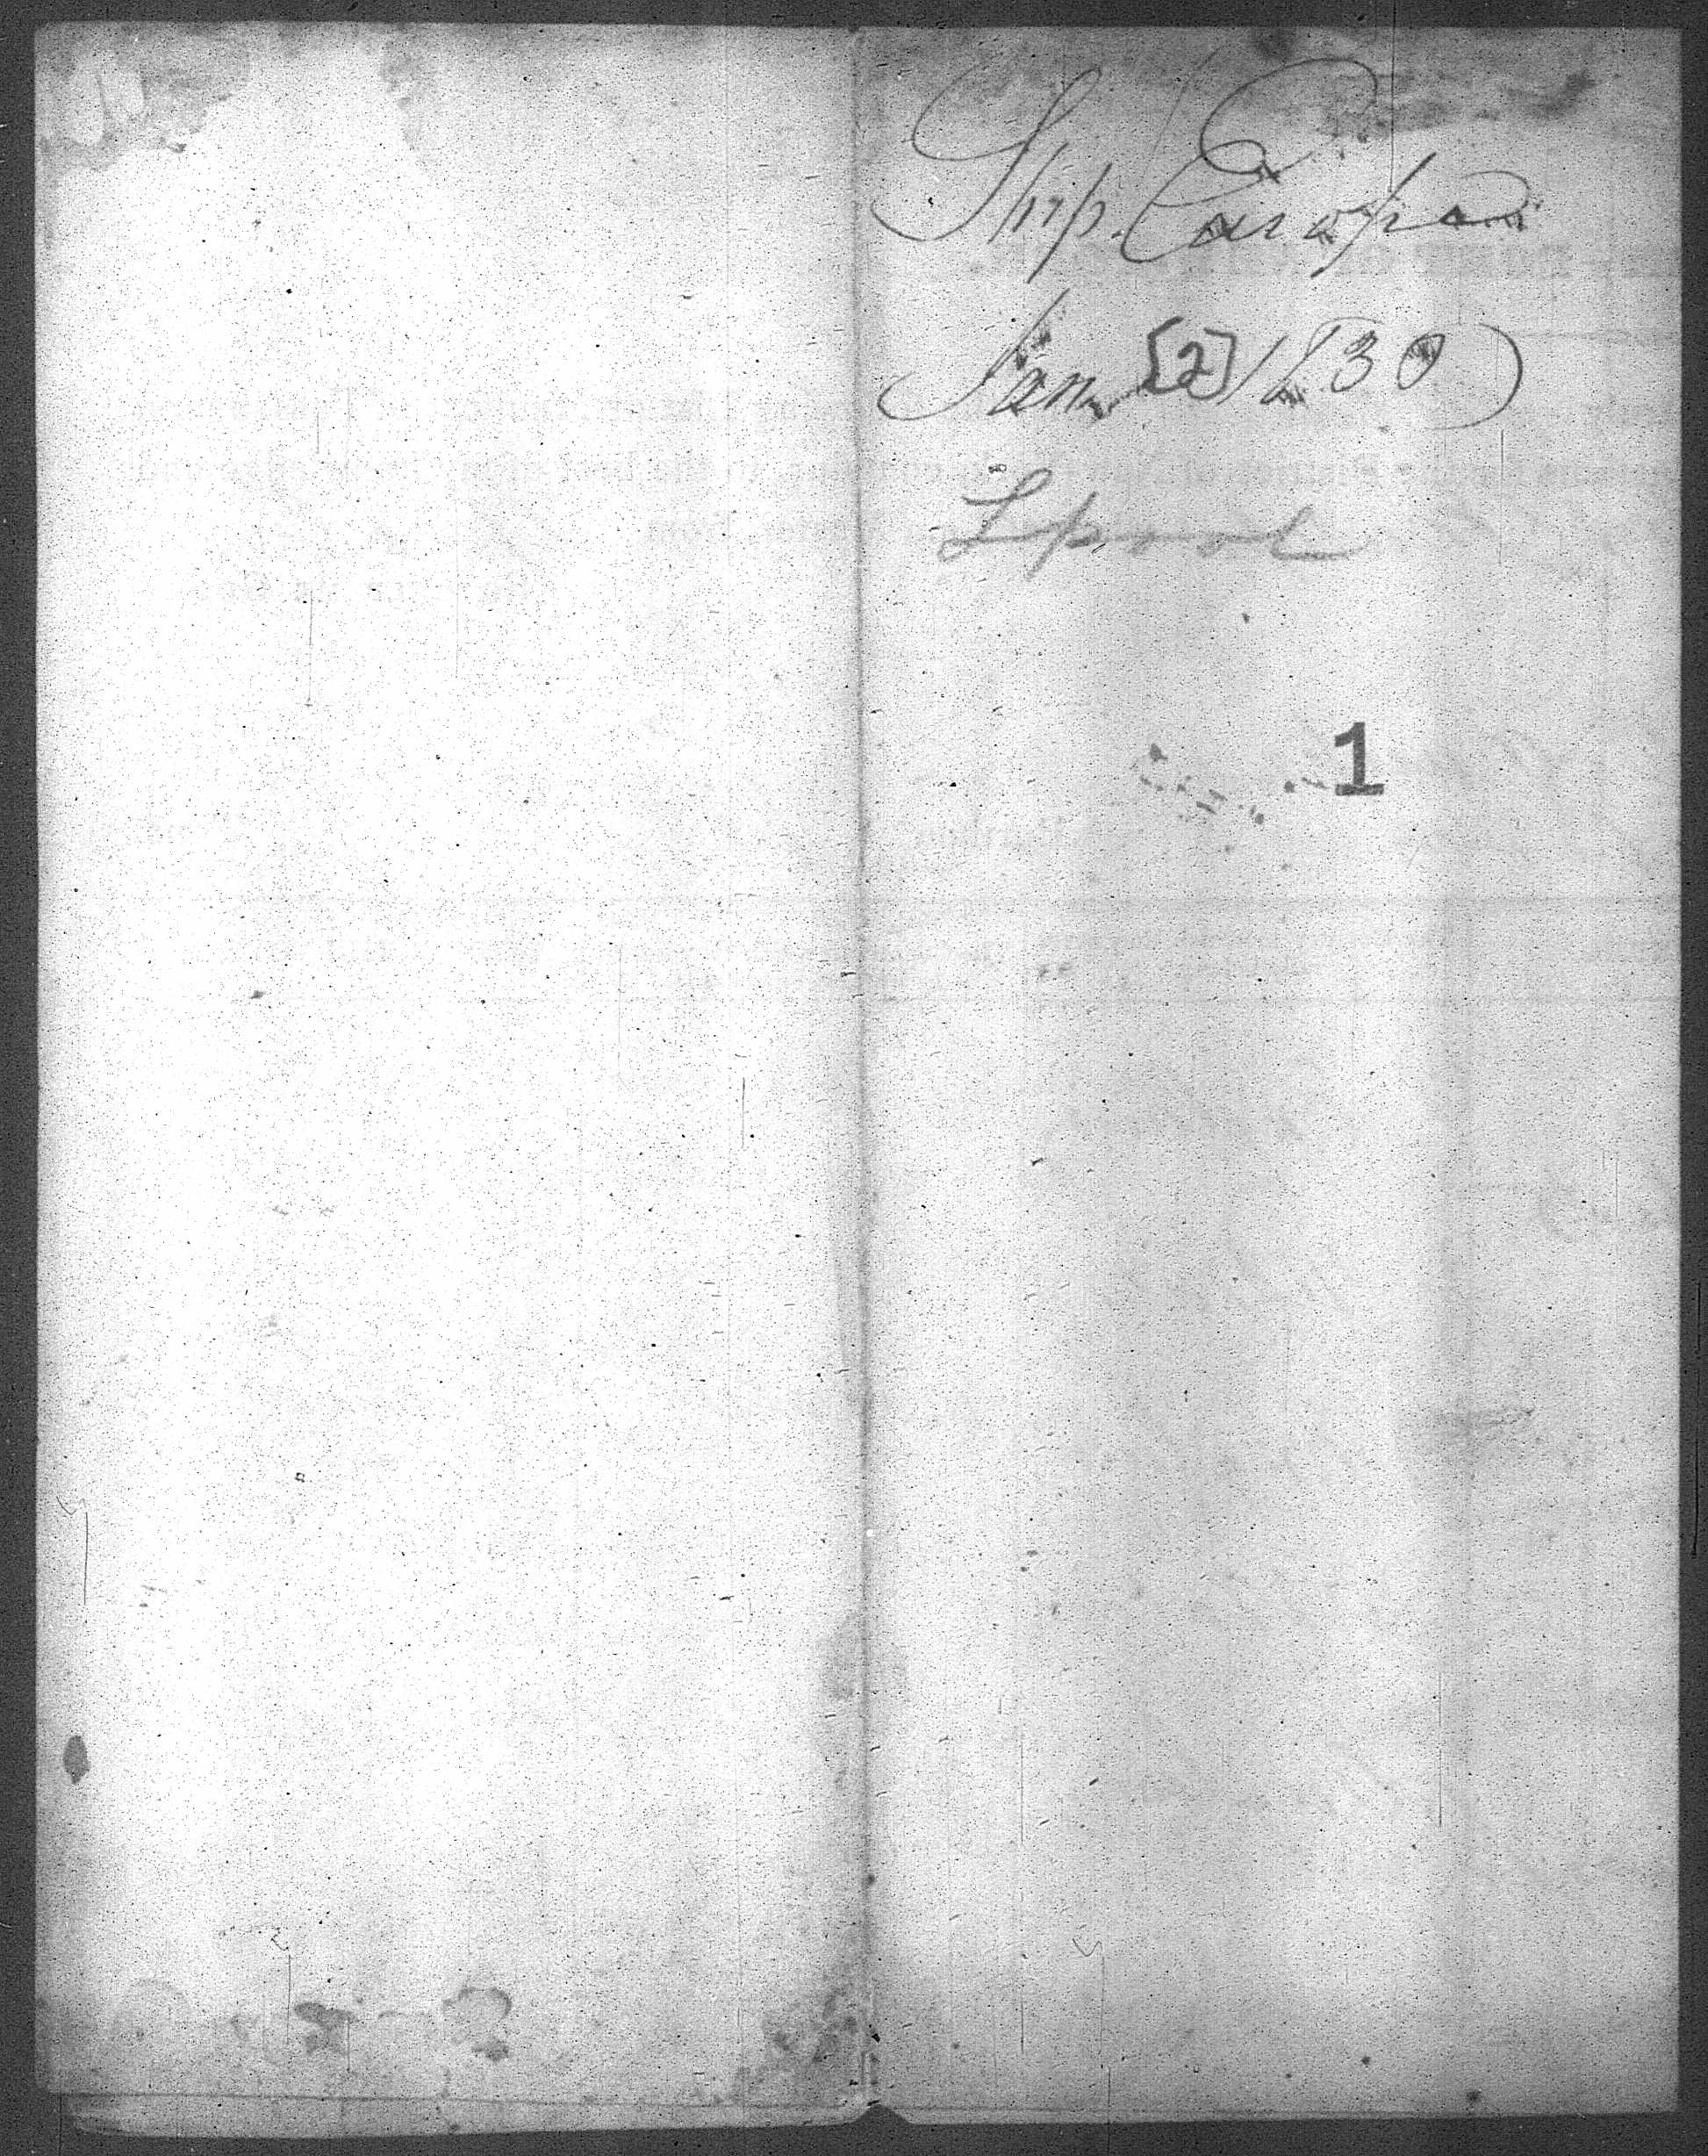 Ship Europa
Jan [2] 1830
Lpool
1